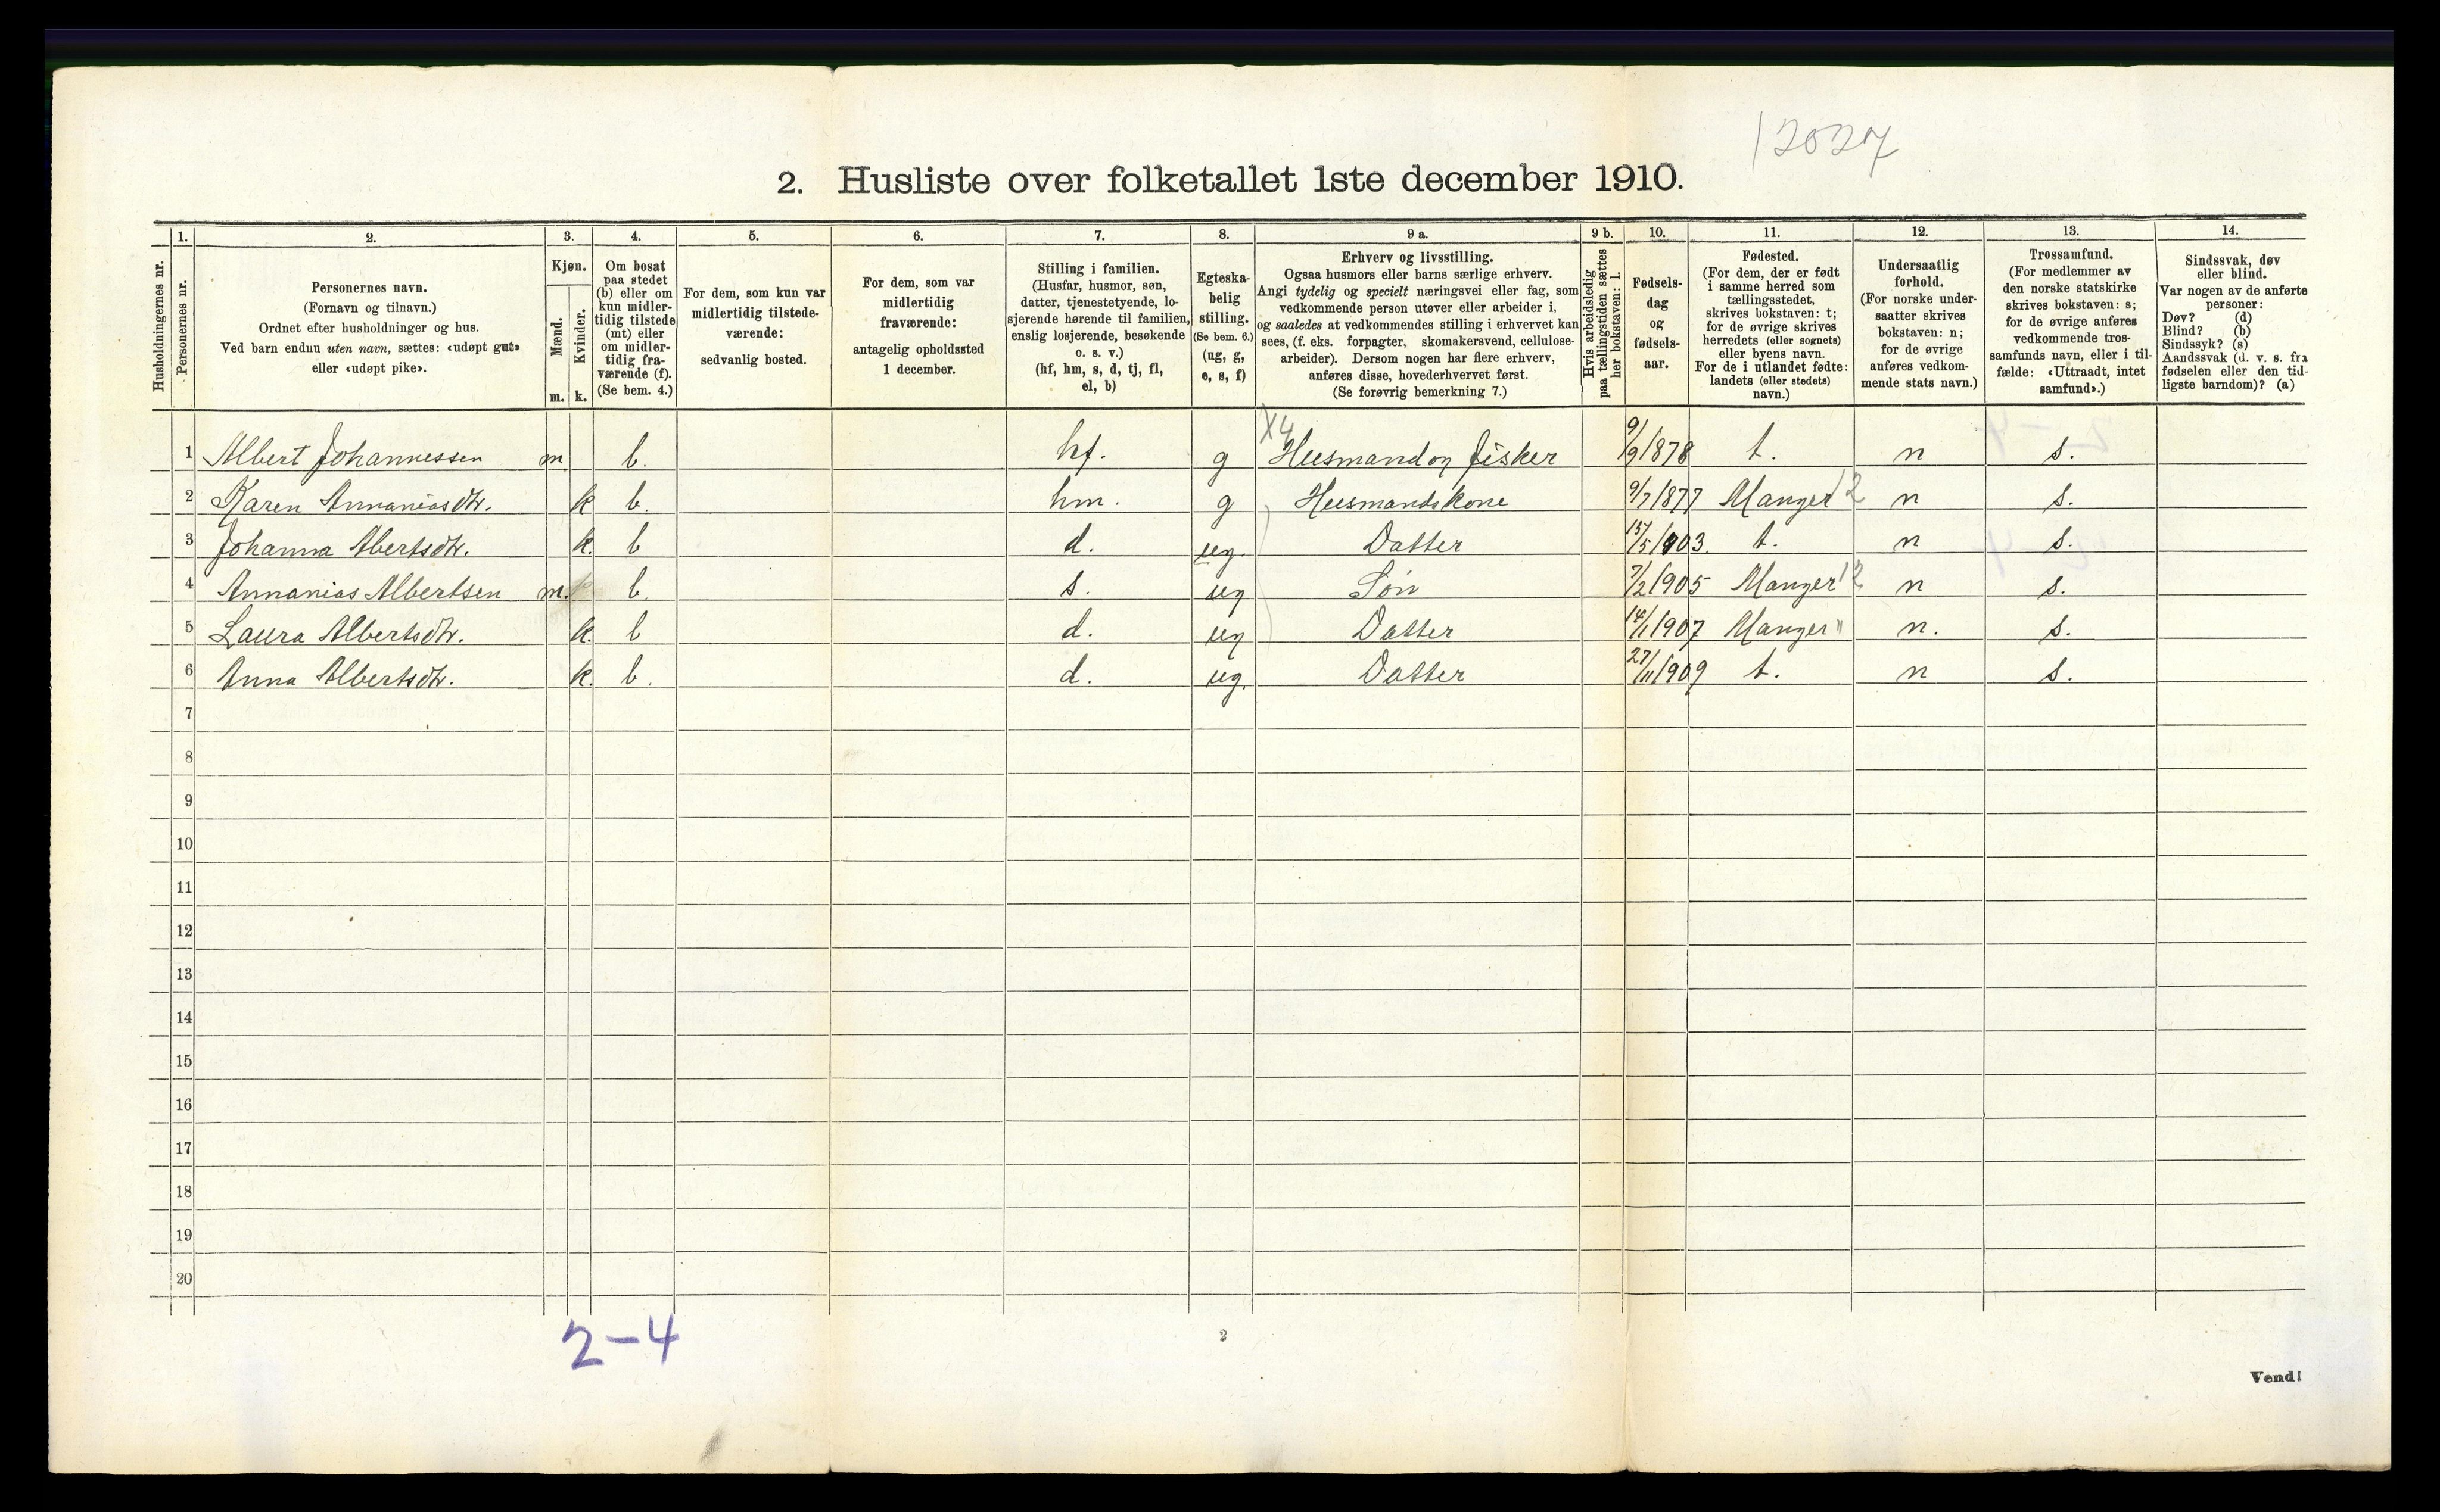 12027
2. Husliste over folketallet 1ste december 1910.
Husholdningernes nr.
1.
Personernes nr.
2.
Personernes navn.
(Fornavn og tilnavn.)
Ordnet efter husholdninger og hus.
Ved barn endnu uten navn, sættes: «udøpt gut»
eller «udøpt pike».
3.
Kjøn.
Mænd.
m.
Kvinder.
k.
4.
Om bosat
paa stedet
(b) eller om
kun midler-
tidig tilstede
(mt) eller
om midler-
tidig fra-
værende (f).
(Se bem. 4.)
5.
For dem, som kun var
midlertidig tilstede-
værende:
sedvanlig bosted.
6.
For dem, som var
midlertidig
fraværende:
antagelig opholdssted
1 december.
7.
Stilling i familien.
(Husfar, husmor, søn,
datter, tjenestetyende, lo-
sjerende hørende til familien,
enslig losjerende, besøkende
o. s. v.)
(hf, hm, s, d, tj, fl,
el, b)
8.
Egteska-
belig
stilling.
(Se bem. 6.)
(ug, g,
e, s, f)
9 a.
Erhverv og livsstilling.
Ogsaa husmors eller barns særlige erhverv.
Angi tydelig og specielt næringsvei eller fag, som
vedkommende person utøver eller arbeider i,
og saaledes at vedkommendes stilling i erhvervet kan
sees, (f. eks. forpagter, skomakersvend, cellulose-
arbeider). Dersom nogen har flere erhverv,
anføres disse, hovederhvervet først.
(Se forøvrig bemerkning 7.)
9 b.
Hvis arbeidsledig
paa tællingstiden sættes
her bokstaven: l.
10.
Fødsels-
dag
og
fødsels-
aar.
11.
Fødested.
(For dem, der er født
i samme herred som
tællingsstedet,
skrives bokstaven: t;
for de øvrige skrives
herredets (eller sognets)
eller byens navn.
For de i utlandet fødte:
landets (eller stedets)
navn.)
12.
Undersaatlig
forhold.
(For norske under-
saatter skrives
bokstaven: n;
for de øvrige
anføres vedkom-
mende stats navn.)
13.
Trossamfund.
(For medlemmer av
den norske statskirke
skrives bokstaven: s;
for de øvrige anføres
vedkommende tros-
samfunds navn, eller i til-
fælde: «Uttraadt, intet
samfund».)
14.
Sindssvak, døv
eller blind.
Var nogen av de anførte
personer:
Døv? (d)
Blind? (b)
Sindssyk? (s)
Aandssvak (d. v. s. fra
fødselen eller den tid-
ligste barndom)? (a)
X4
1 Albert Johannessen m b. hf. g Husmand og fisker 9/9 1878 t. n s.
2 Karen Annaniasdtr. k b. hm. g Husmandskone 9/7 1877 Manger 12 n s.
3 Johanna Abertsdtr. k. b d. ug. Datter 15/5 1903. t. n s.
4 Annanias Albertsen m. b. s. ug Søn 7/2 1905 Manger 12 n s.
5 Laura Albertsdtr. k. b d. ug Datter 14/1 1907 Manger " n. s.
6 Anna Albertsdtr. k. b. d. ug. Datter 27/11 1909 t. n s.
7
8
9
10
11
12
13
14
15
16
17
18
19
20
2-4
2
Vend!